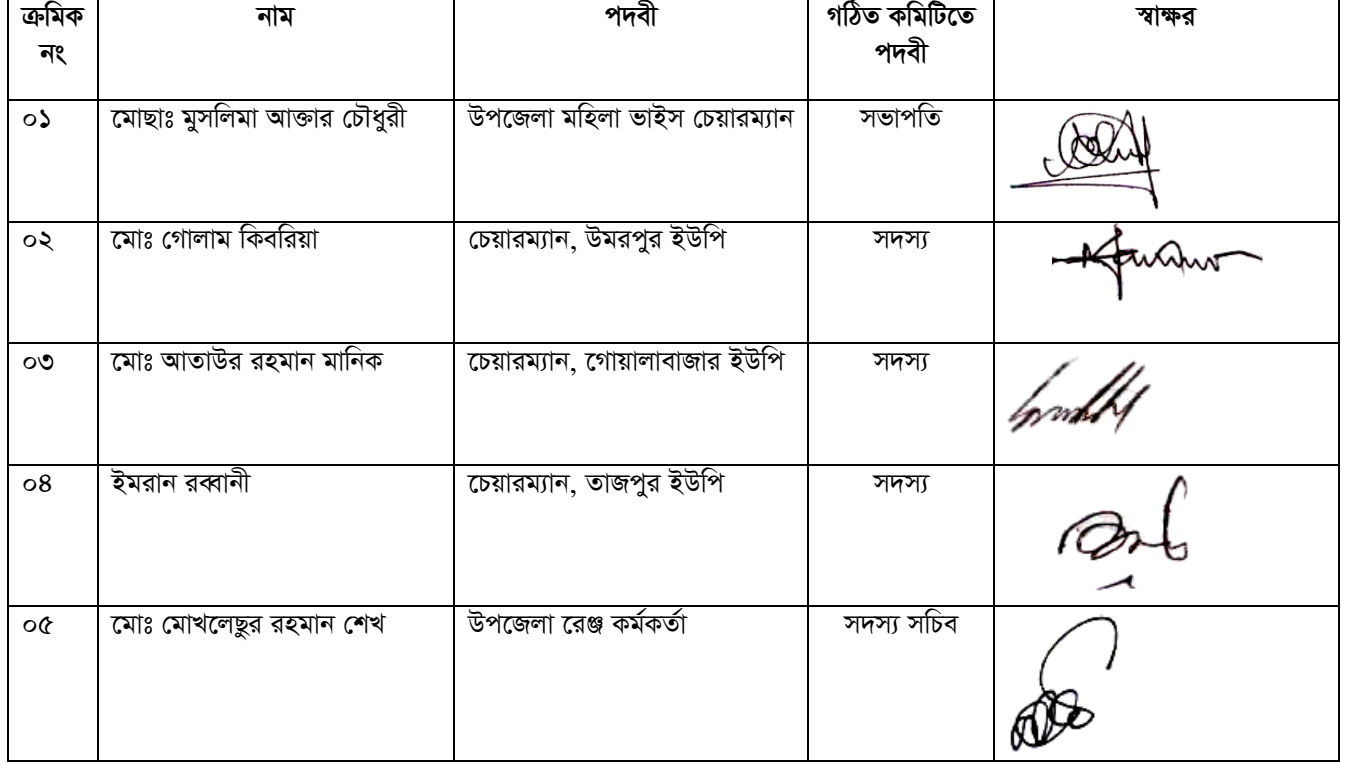 ক্রমিক নং নাম পদবী গঠিত কমিটিতে পদবী স্বাক্ষর
০১ মোছাঃ মুসলিমা আক্তার চৌধুরী উপজেলা মহিলা ভাইস চেয়ারম্যান সভাপতি
০২ মোঃ গোলাম কিবরিয়া চেয়ারম্যান, উমরপুর ইউপি সদস্য
০৩ মোঃ আতাউর রহমান মানিক চেয়ারম্যান, গোয়ালাবাজার ইউপি সদস্য
০৪ ইমরান রব্বানী চেয়ারম্যান, তাজপুর ইউপি সদস্য
০৫ মোঃ মোখলেছুর রহমান শেখ উপজেলা রেঞ্জ কর্মকর্তা সদস্য সচিব